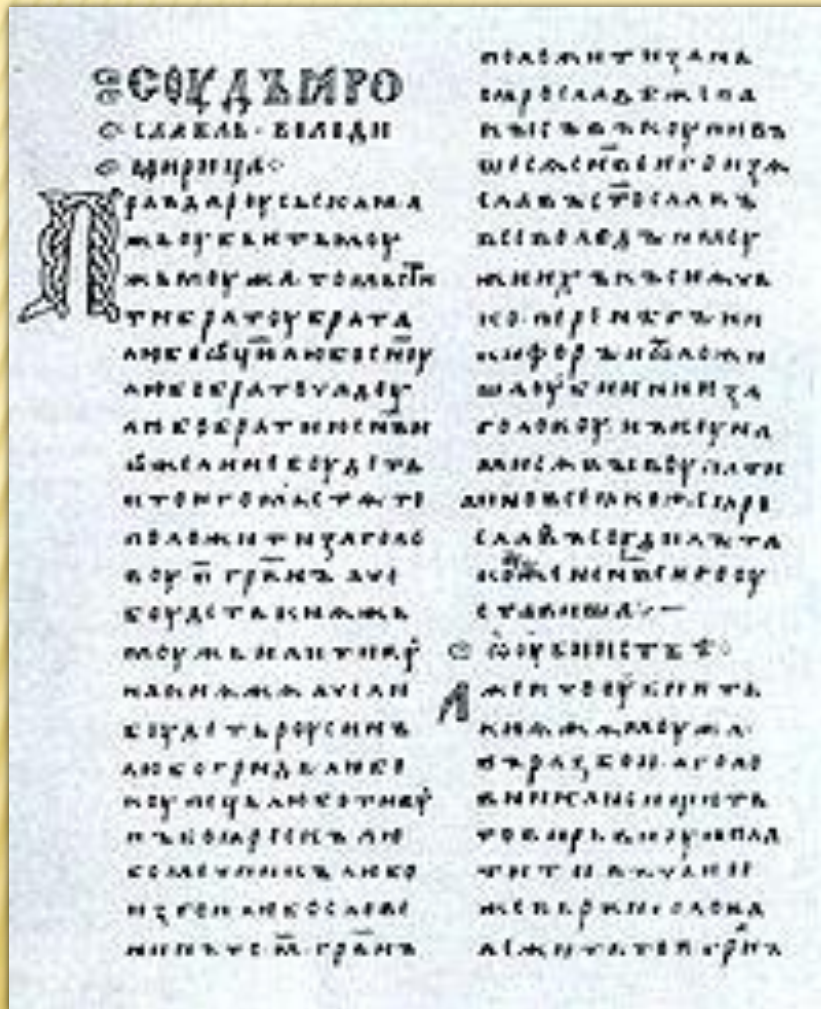 СОУДЪꙖРО
СЛАВЛЬ·ВОЛОДИ
МИРИЦА
ПРАВДАРОУСЬСКАꙖ·А
ЖЬОУБЬЕТЬМОУ
ЖЬМОУЖА·ТОМЬСТИ
ТИБРАТОУБРАТА
ЛЮБООЦЮЛЮБОСНОУ
ЛЮБОБРАТОУЧАДОУ
ЛЮБОБРАТНЮСНВИ
ОЖЕЛИНЕБОУДЕТЬ
КТОЕГОМЬСТѦ·ТО
ПОЛОЖИТИЗАГОЛО
ВОУ·П·ГРВНЪ·АЧЕ
БОУДЕТЬКНѦЖЬ
МОУЖЬИЛИТИВОУ
НАКНѦЖѦ·АЧЕЛИ
БОУДЕТЬРОУСИНЪ
ЛЮБОГРИДЬЛЮБО
КОУПЕЦЬЛЮБОТИВОУ
НЪБОꙖРЕСКЪЛЮ
БОМЕЧНИКЪЛЮБО
ИЗГОИЛЮБОСЛОВЕ
НИНЪТО·М·ГРВНЪ
ПОЛОЖИТИЗАНЬ
ПОꙖРОСЛАВѢЖЕПА
КЫСЪВЪКОУПИВЪ
ШЕСѦСНВЕЕГОИЗѦ
СЛАВЪСТОСЛАВЪ
ВСЕВОЛОДЪИМОУ
ЖИИХЪКЪСНѦЧЬ
КО·ПЕРЕНѢГЪНИ
КИФОРЪИОТЛОЖИ
ШАОУБИЕНИЕЗА
ГОЛОВОУНЪКОУНА
МИСѦВЫКОУПАТИ
АИНОВСЕꙖКОЖЕꙖРО
СЛАВЪСОУДИЛЪТА
КОЖЕИСНВЕЕГООУ
СТАВИША
ООУБИИСТВѢ
АЖЕКТООУБИЕТЬ
КНѦЖѦМОУЖА
ВЪРАЗБОИ·АГОЛО
ВНИКАНЕИЩЮТЬ
ТОВИРЬВНОУЮПЛА
ТИТИВЪЧЬЕИ
ЖЕВЕРВИГОЛОВА
ЛЕЖИТЬТОП·ГРВНЪ